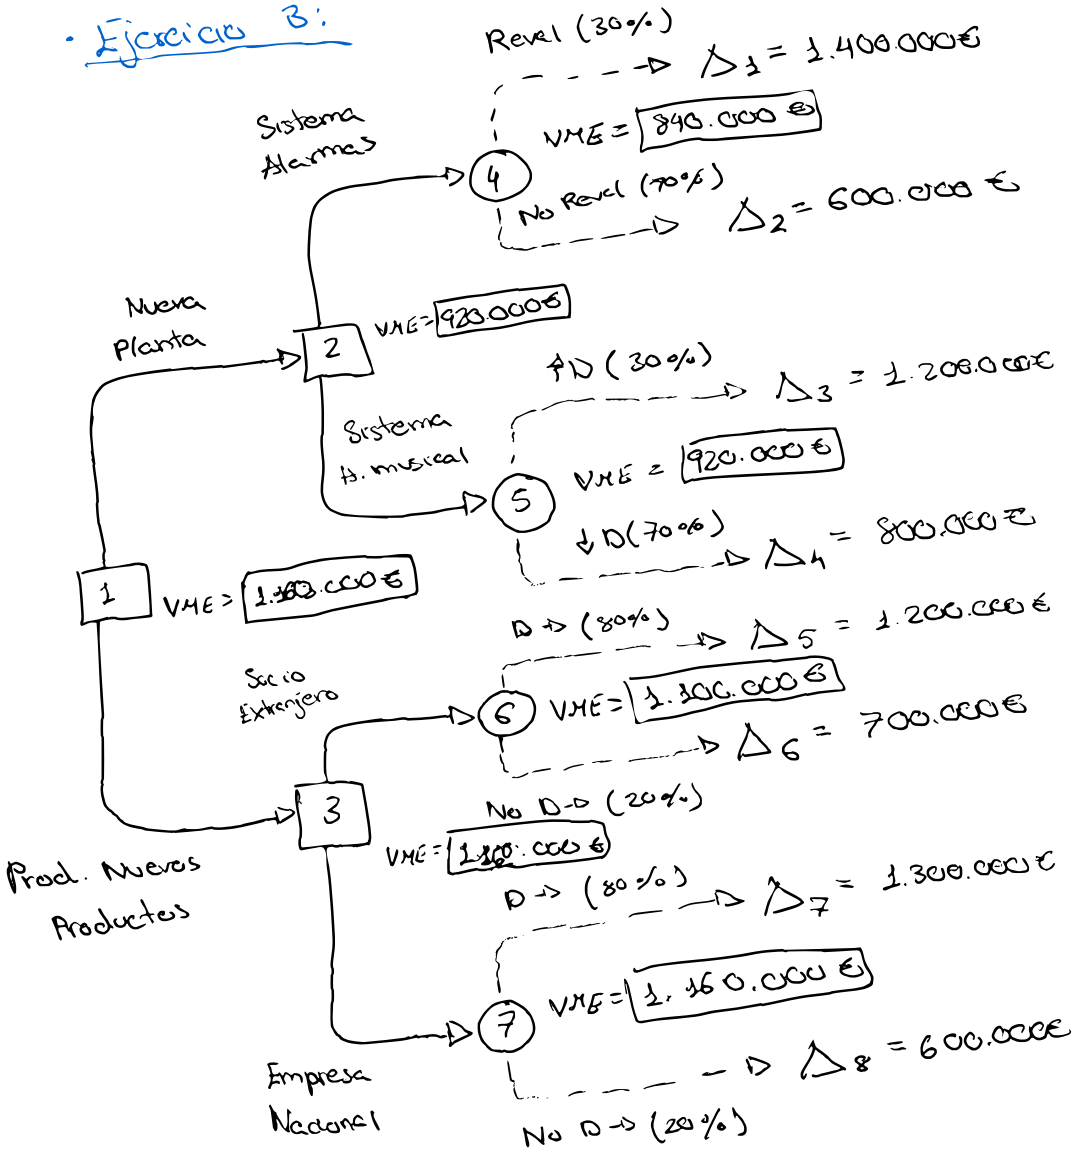 • Ejercicio 3:
Revel (30%)
Δ1 = 1.400.000€
Sistema
Alarmas
VME = 840.000 €
4
No Revel (70%)
Δ2 = 600.000 €
Nueva
Planta
2
VME= 920.000€
↑D (30%)
Δ3 = 1.200.000€
Sistema
A. musical
VME = 920.000 €
5
↓D(70%)
Δ4 = 800.000 €
1
VME = 1.160.000 €
D → (80%)
Δ5 = 1.200.000 €
Socio
Extranjero
6
VME= 1.100.000 €
Δ6 = 700.000€
No D→ (20%)
3
VME= 1.160.000 €
Prod. Nuevos
Productos
D → (80%)
Δ7 = 1.300.000 €
VME= 1.160.000 €
7
Δ8 = 600.000€
Empresa
Nacional
No D → (20%)